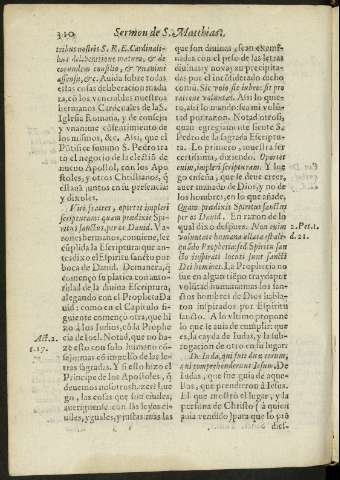 310 Sermon de S. Matthias.
tribus nostris S. R. E. Cardinalibus
deliberatione matura, & de
eorundem consilio, & vnanimi
assensu, &c. Auida sobre todas
estas cosas deliberacion madura,
cõ los venerables nuestros
hermanos Cardenales de la S.
Iglesia Romana, y de consejo
y vnanime cõsentimiento de
los mismos, &c. Assi, que el
Põtifice summo S. Pedro trato
el negocio de la electiõ de
nueuo Apostol, con los Apostoles,
y otros Christianos, q̃
estauã juntos en su presencia:
y dixoles.
Viri fratres, oportet impleri
scripturam: quam prædixit Spiritus
sanctus per os Dauid. Varones
hermanos, conuiene, se
cũplida la Escriptura que antes
dixo el Espiritu sancto por
boca de Dauid. De manera, q̃
començo su platica con autoridad
de la diuina Escriptura,
alegando con el Propheta Dauid:
como en el Capitulo siguiente
començo otra, que hizo
à los Iudios, cõ la Prophecia
de Ioel. Notad, que no haze
esto con solo humano consejo,
mas cõ impulso de las letras
sagradas. Y si esto hizo el
Principe de los Apostoles, q̃
deuemos nosotros hazer? Luego,
las cosas que son ciuiles,
auerigüense con las leyes ciuiles,
yguales, y justas: mas las
Act. 2.
c. 17.
que son diuinas, sean examinadas
con el peso de las letras
diuinas y no vayan precipitadas
por el inconsiderado decho
comũ. Sic volo sic iubeo: sit pro
ratione voluntas. Assi lo quiero,
assi lo mando: sea mi voluntad
por razon. Notad otrosi,
quan egregiamente siente S.
Pedro de la sagrada Escriptura.
Lo primero, muestra ser
certissima, diziendo. Oportet
enim, impleri scripturam. Y luego
enseña, que se deue creer,
auer manado de Dios, y no de
los hombres, en lo que añade,
Quam prædixit Spiritus sanctus
per os Dauid. En razon de lo
qual dixo despues. Non enim
voluntate humana allata est aliquando
Prophetia: sed Spiritu sancto
inspirati locuti sunt sancti
Dei homines. La Prophecia no
fue en algun tiempo trayda por
voluntad humana: mas los sanctos
hombres de Dios hablaron
inspirados por Espiritu
sancto. A lo vltimo propone
lo que se auia de cumplir: que
es, la cayda de Iudas, y la substitucion
de otro en su lugar:
De Iuda, qui fuit dux eorum,
qui comprehenderunt Iesum. De
Iudas, que fue guia de aquellos,
que prendieron à Iesus.
El que mostro el lugar, y la
persona de Christo (à quien
auia vendido) para que lo prõ
2. Pet. 1.
d. 21.
dies-